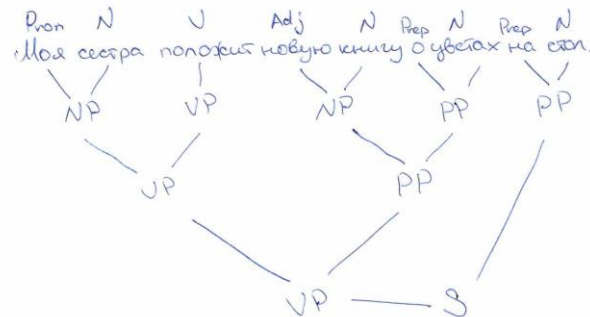 Pron N V Adj N Prep N Prep N
Моя сестра положит новую книгу о цветах на стол.
NP VP NP PP PP
VP PP
VP S